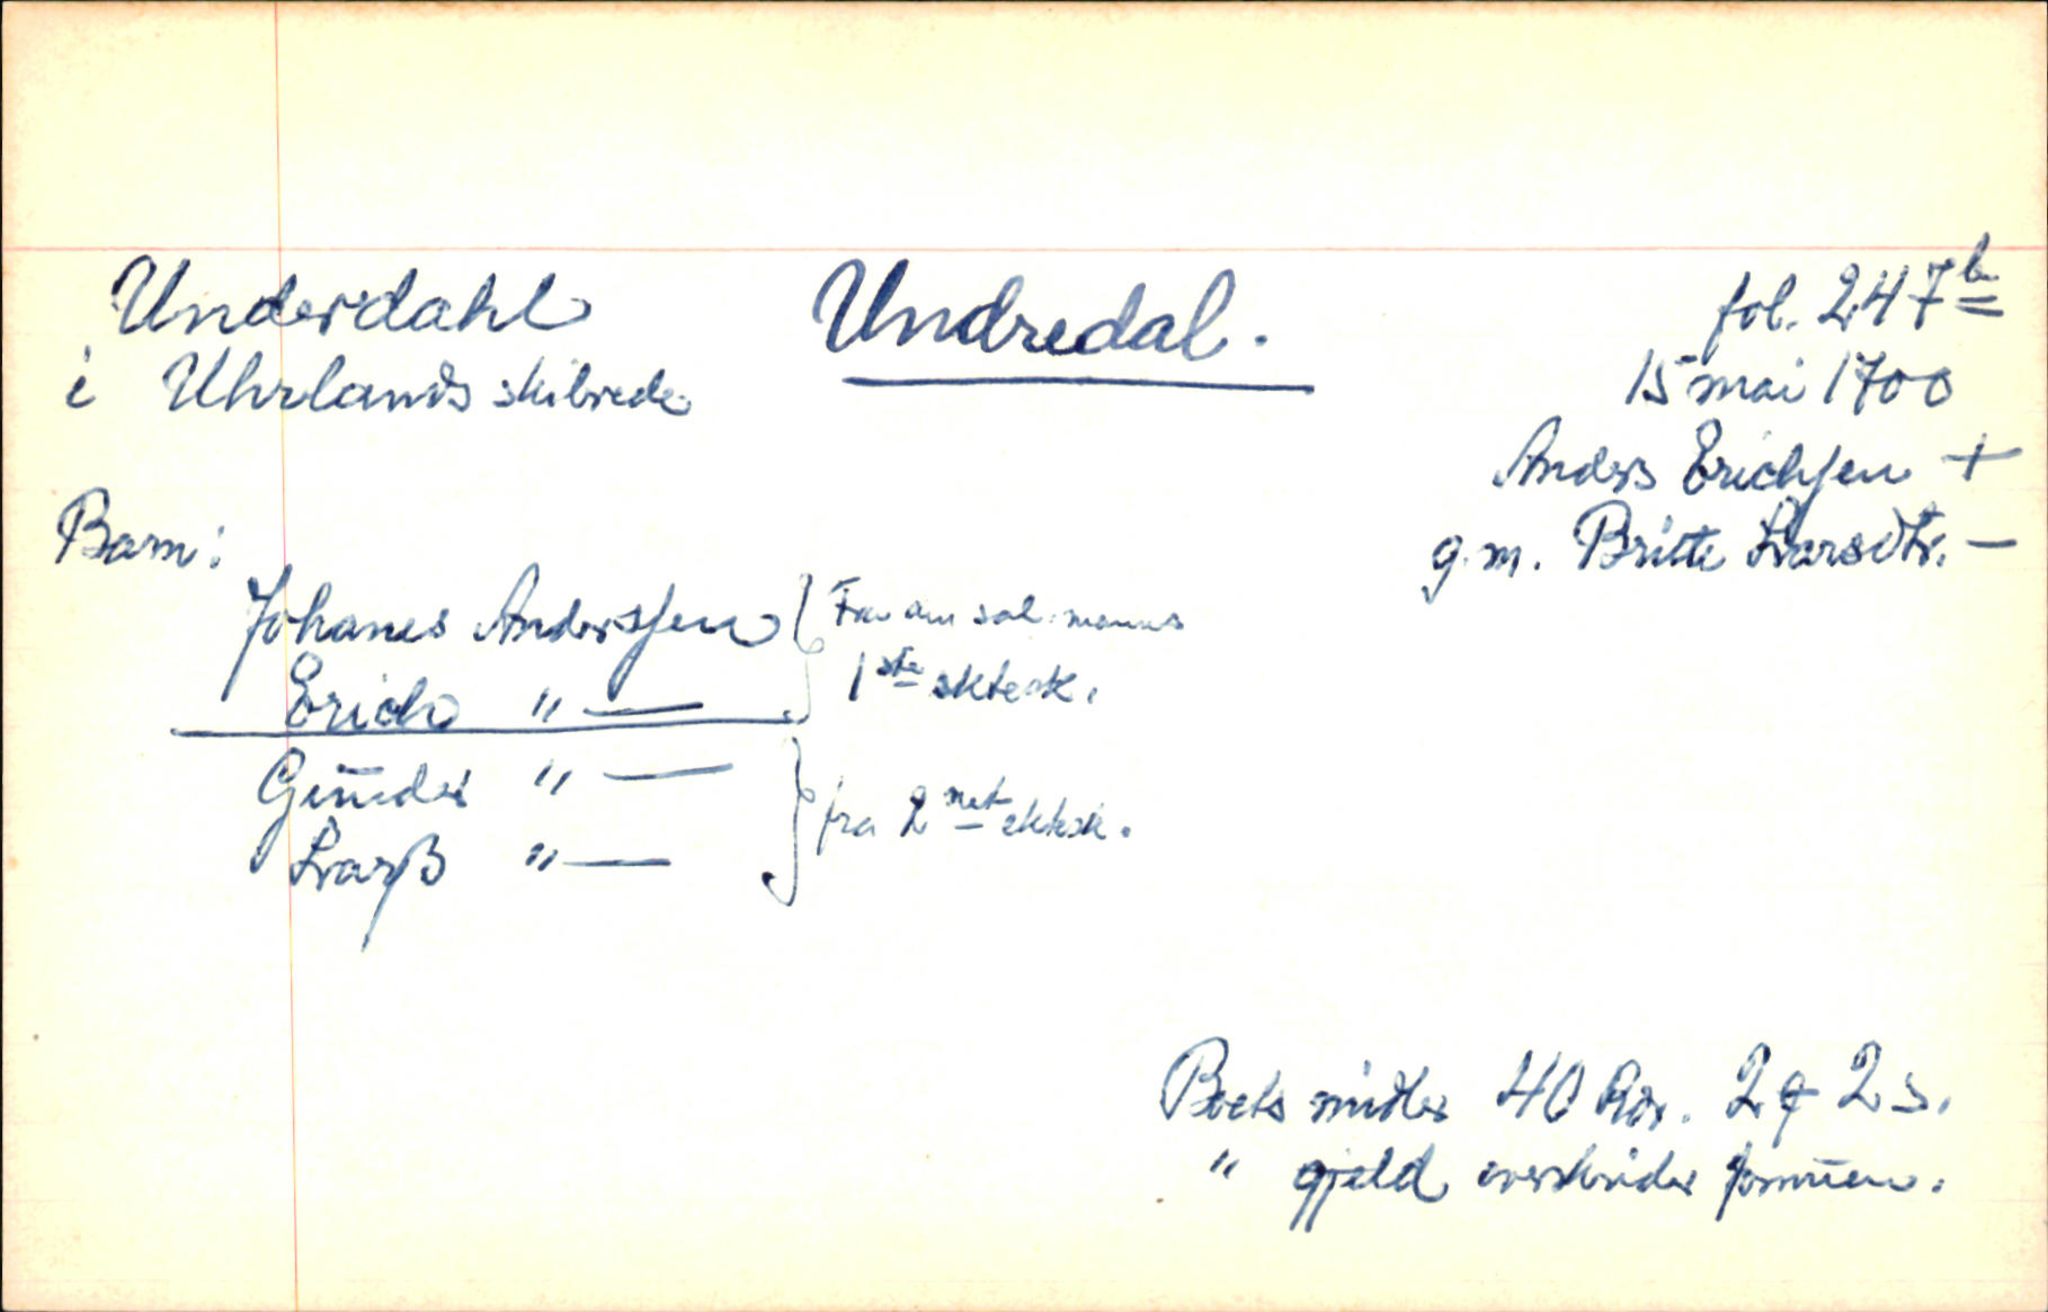 Underdahl Undredal. fol. 247 b
i Uhrlands skibrede 15 mai 1700
Anders Erichsen +
g.m. Britte Larsdtr. —
Barn:
Johanes Anderssen } Fra den sal. manns
Erich " — 1ste ektesk.
Gunder " —
Larß " — } fra 2net ektesk.
Boets midler 40 Rdr. 2 ₰ 2 s.
" gjeld overskrider formuen.